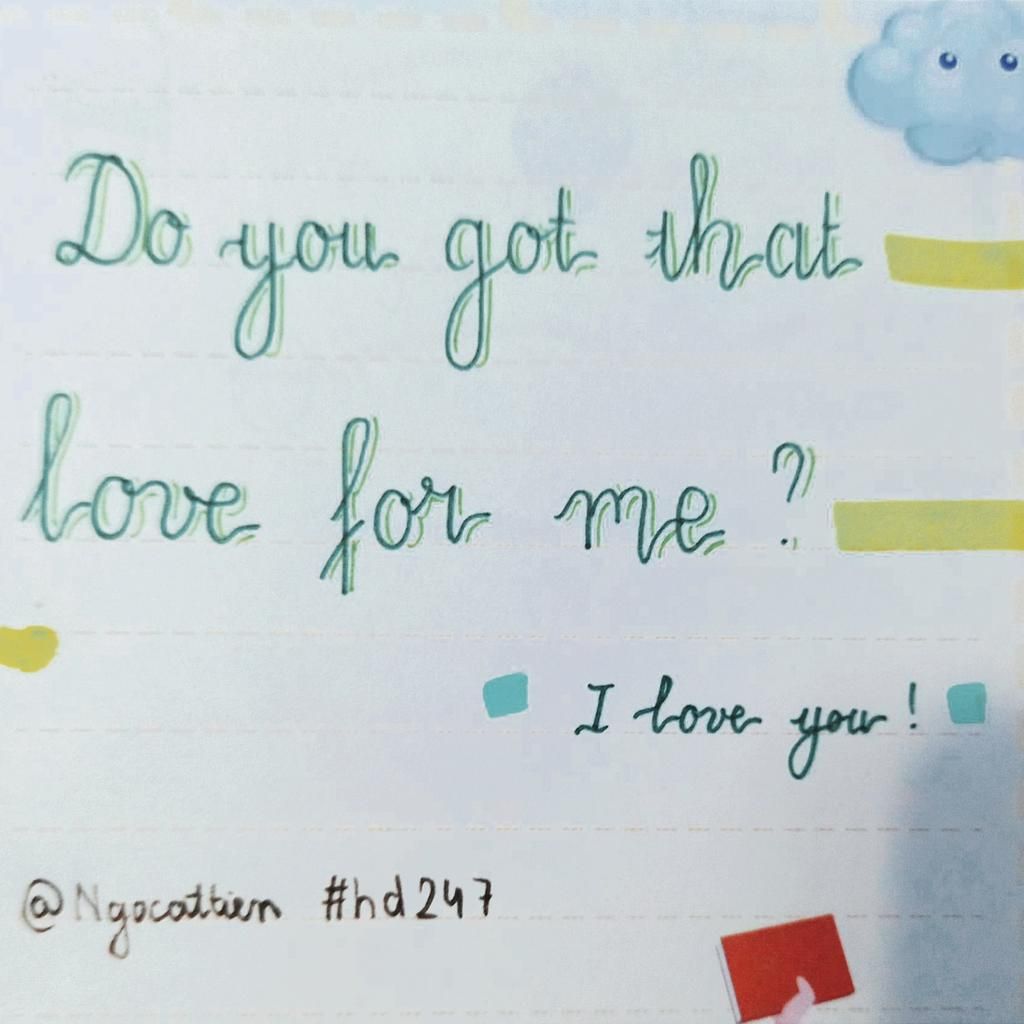 Do you got that
love for me ?
I love you !
@Ngocattien #hd247